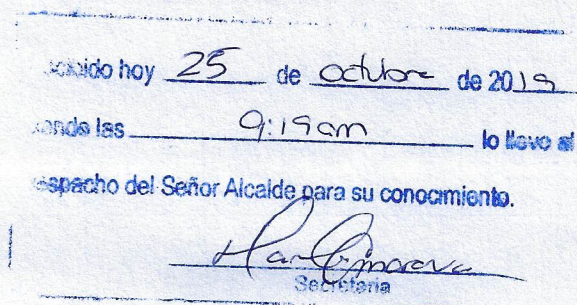 hoy 25 de octubre de 2019
las 9:19am lo llevo al
espacho del Señor Alcalde para su conocimiento.
Secretaria